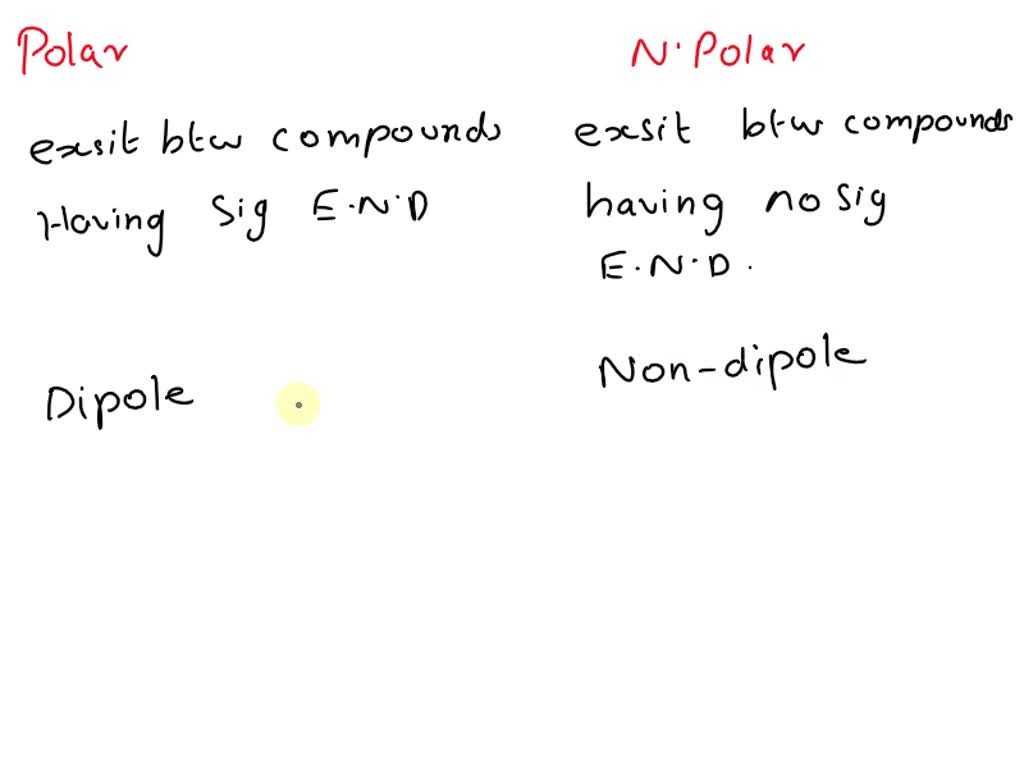 Polar
exsit btw compounds
Having Sig E.N.D
Dipole
N.Polar
exsit btw compounds
having no sig
E.N.D.
Non-dipole